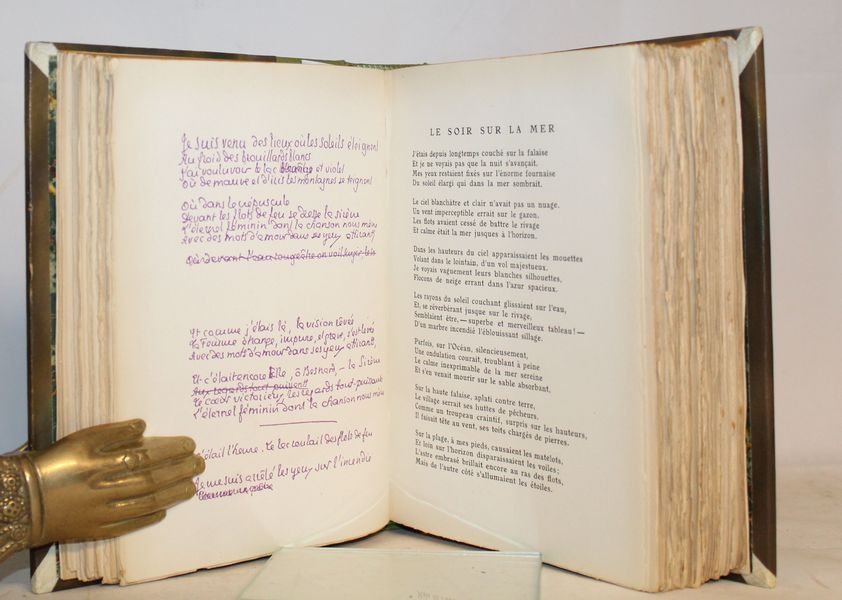 Je suis venu des lieux où les soleils éteignent
Au froid des brouillards blancs
J'ai voulu voir le lac et violet
Où de mauve et d'iris les montagnes se teignent
Où dans le crépuscule
Devant les flots de feu se dresse la sirène
L'éternel féminin dont la chanson nous mène
Avec des mots d'amour dans ses yeux attirants
Où devant l'eau
Et comme j'étais là, la vision rêvée
La Femme étrange, impure, et s'est levée
Avec des mots d'amour dans ses yeux attirants,
Et c'était encore Elle, ô Besnard, – la Sirène
Aux regards tout puissants
Le cœur victorieux, les regards tout-puissants
L'éternel féminin dont la chanson nous mène
C'était l'heure. Le lac coulait des flots de feu
Je me suis arrêté les yeux sur l'incendie
LE SOIR SUR LA MER
J'étais depuis longtemps couché sur la falaise
Et je ne voyais pas que la nuit s'avançait.
Mes yeux restaient fixés sur l'énorme fournaise
Du soleil élargi qui dans la mer sombrait.
Le ciel blanchâtre et clair n'avait pas un nuage.
Un vent imperceptible errait sur le gazon.
Les flots avaient cessé de battre le rivage
Et calme était la mer jusques à l'horizon.
Dans les hauteurs du ciel apparaissaient les mouettes
Volant dans le lointain, d'un vol majestueux.
Je voyais vaguement leurs blanches silhouettes,
Flocons de neige errant dans l'azur spacieux.
Les rayons du soleil couchant glissaient sur l'eau,
Et, se réverbérant jusque sur le rivage,
Semblaient être, — superbe et merveilleux tableau ! —
D'un marbre incendié l'éblouissant sillage.
Parfois, sur l'Océan, silencieusement,
Une ondulation courait, troublant à peine
Le calme inexprimable de la mer sereine
Et s'en venait mourir sur le sable absorbant,
Sur la haute falaise, aplati contre terre,
Le village serrait ses huttes de pêcheurs,
Comme un troupeau craintif, surpris sur les hauteurs,
Il faisait tête au vent, ses toits chargés de pierres.
Sur la plage, à mes pieds, causaient les matelots,
Et loin sur l'horizon disparaissaient les voiles ;
L'astre embrasé brillait encore au ras des flots,
Mais de l'autre côté s'allumaient les étoiles.